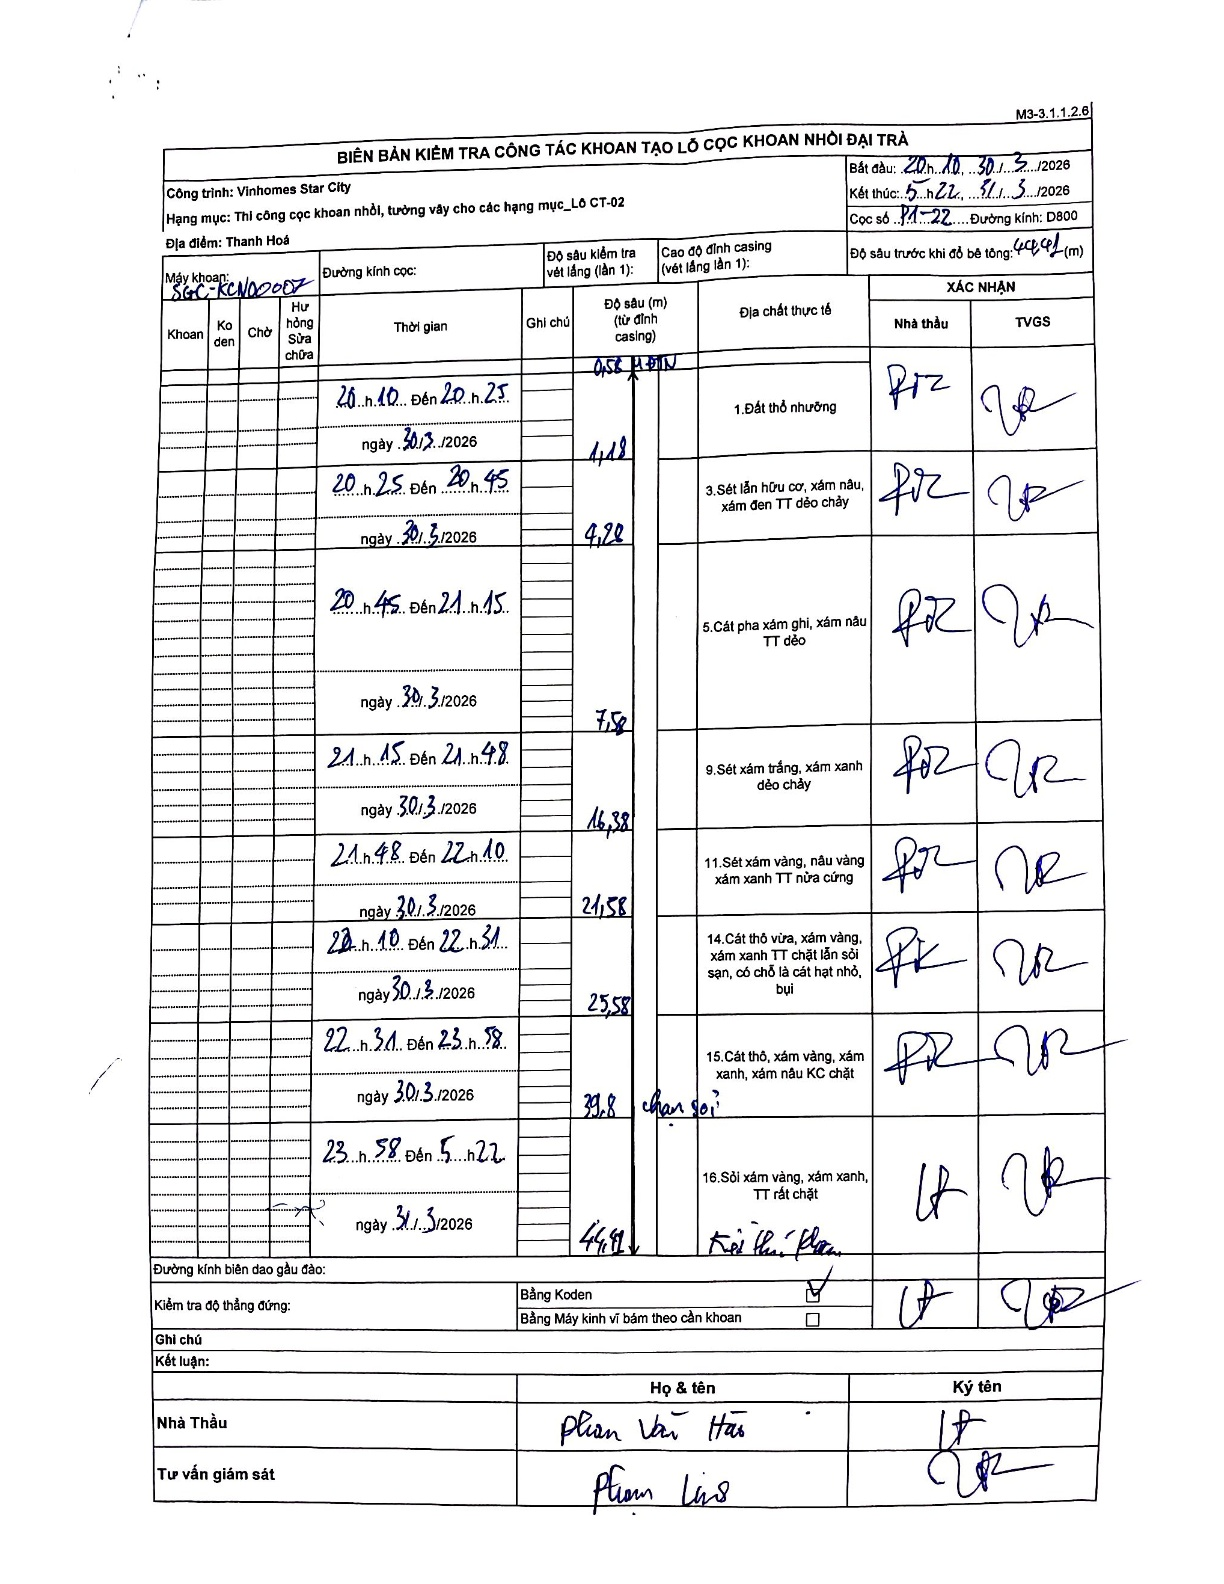 M3-3.1.1.2.6
BIÊN BẢN KIỂM TRA CÔNG TÁC KHOAN TẠO LỖ CỌC KHOAN NHỒI ĐẠI TRÀ
Công trình: Vinhomes Star City
Hạng mục: Thi công cọc khoan nhồi, tường vây cho các hạng mục_Lô CT-02
Địa điểm: Thanh Hoá
Bắt đầu: 20.h.10, 30./.3./2026
Kết thúc: 5.h22, 31./.3./2026
Cọc số P1-22 Đường kính: D800
Máy khoan: SGC-KCN00007
Đường kính cọc:
Độ sâu kiểm tra vét lắng (lần 1):
Cao độ đỉnh casing (vét lắng lần 1):
Độ sâu trước khi đổ bê tông: 44,41 (m)
Khoan
Ko den
Chờ
Hư hỏng Sửa chữa
Thời gian
Ghi chú
Độ sâu (m) (từ đỉnh casing)
Địa chất thực tế
XÁC NHẬN
Nhà thầu
TVGS
0,58 MĐTN
20.h.10... Đến 20..h.25.
ngày 30/.3./2026
1,18
1.Đất thổ nhưỡng
20..h.25. Đến 20..h.45
ngày 30/.3./2026
4,28
3.Sét lẫn hữu cơ, xám nâu, xám đen TT dẻo chảy
20..h.45. Đến 21..h.15..
ngày 30/.3./2026
7,58
5.Cát pha xám ghi, xám nâu TT dẻo
21..h..15. Đến 21..h.48.
ngày 30/.3./2026
16,38
9.Sét xám trắng, xám xanh dẻo chảy
21.h.48.. Đến 22.h.10
ngày 30/.3./2026
21,58
11.Sét xám vàng, nâu vàng xám xanh TT nửa cứng
22..h..10.. Đến 22.h.31...
ngày 30../.3./2026
25,58
14.Cát thô vừa, xám vàng, xám xanh TT chặt lẫn sỏi sạn, có chỗ là cát hạt nhỏ, bụi
22...h.31.. Đến 23..h..58..
ngày 30/.3./2026
39,8 chạm sỏi
15.Cát thô, xám vàng, xám xanh, xám nâu KC chặt
23...h.58 Đến 5....h22
ngày 31/..3/2026
16.Sỏi xám vàng, xám xanh, TT rất chặt
Đường kính biên dao gầu đào:
Kiểm tra độ thẳng đứng:
Bằng Koden ☑
Bằng Máy kinh vĩ bám theo cần khoan ☐
Ghi chú
Kết luận:
Họ & tên
Ký tên
Nhà Thầu
Phan Văn
Tư vấn giám sát
Phạm